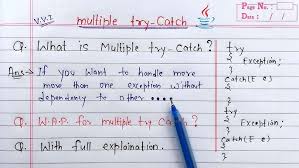 V.V.I
multiple try-Catch
Page No.
Date : / /
Q. What is Multiple try-catch?
Ans→ If you want to handle more
more than one exception without
dependency to other ....
Q. W.A.P. for multiple ty catch?
Q. With full explaination.
try
{
Exception;
}
Catch(E e)
{
}
try
{
Exception;
}
Catch(E e)
{
}